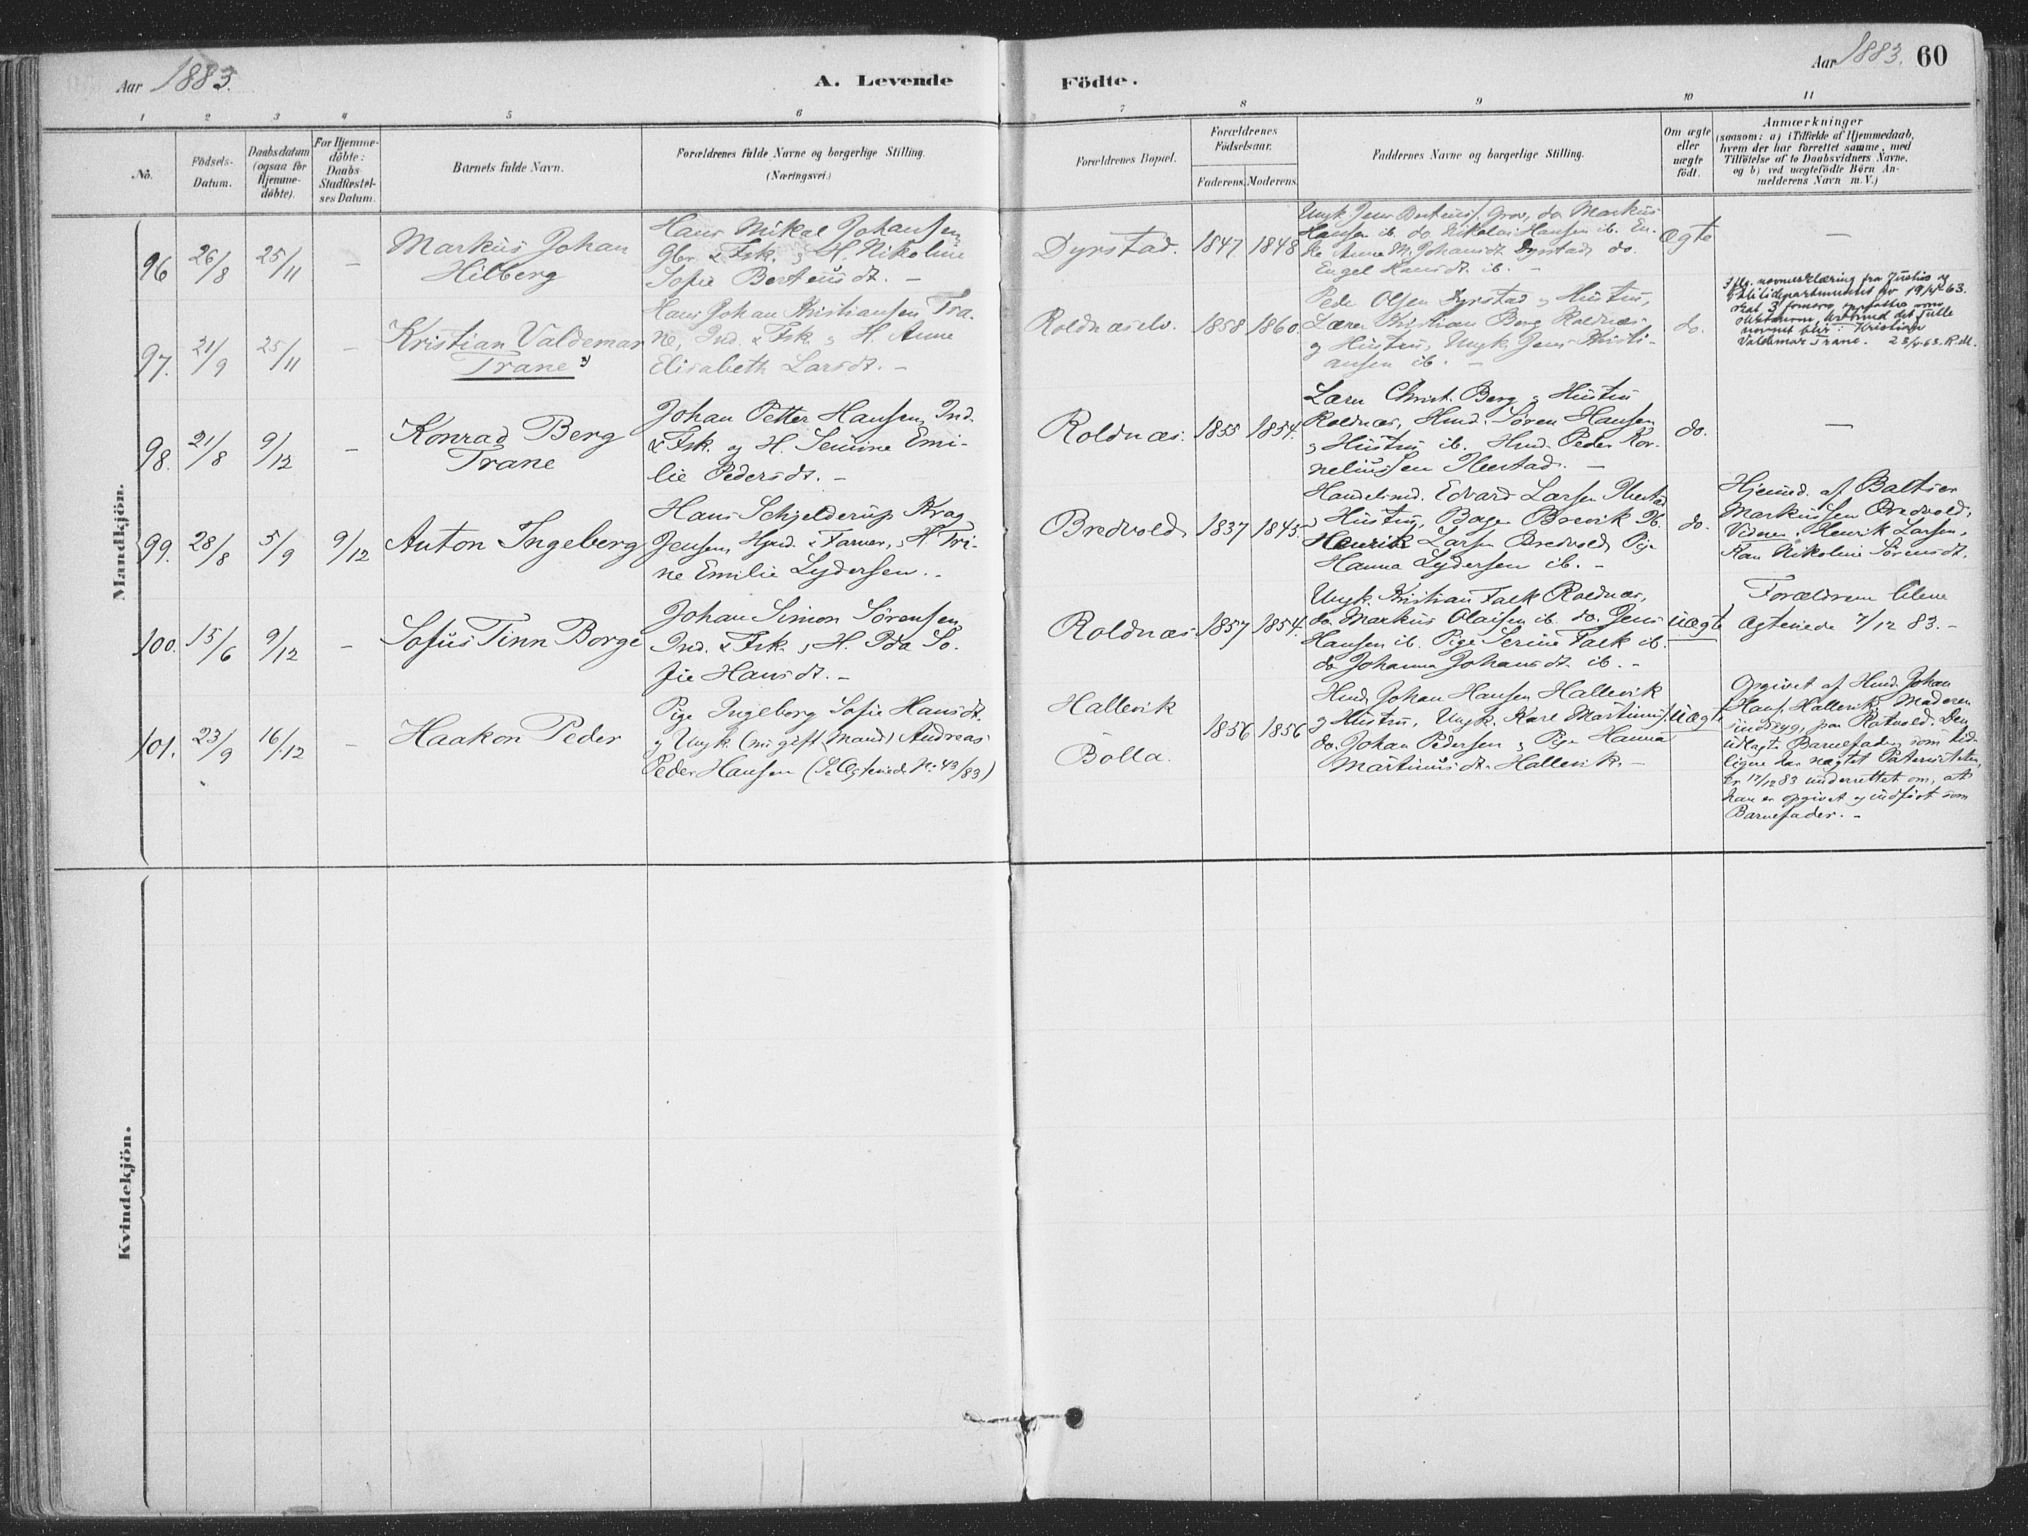 Aar 1883.
A. Levende
Födte.
Aar 1883. 60
1 2 3 4 5 6 7 8 9 10 11
No.
Födsels-
Datum.
Daabsdatum
(ogsaa for
Hjemme-
döbte).
For Hjemme-
döbte:
Daabs-
Stadfæstel-
ses Datum.
Barnets fulde Navn.
Forældrenes fulde Navne og borgerlige Stilling.
(Næringsvei.)
Forældrenes Bopæl.
Forældrenes
Födselsaar.
Faderens. Moderens.
Faddernes Navne og borgerlige Stilling.
Om ægte
eller
uægte
födt.
Anmærkninger
(saasom: a) i Tilfælde af Hjemmedaab,
hvem der har forrettet samme, med
Tilföielse af to Daabsvidners Navne,
og b) ved uægtefödte Börn An-
melderens Navn m. V.)
Mandkjön.
96 26/8 25/11 –
Markus Johan
Hilberg
Hans Mikal Johansen,
Gbr. & Fsk. og H. Nikoline
Sofie Berteusdt. –
Dyrstad. 1847 1848
Ungk. Jens Berteus. Grov, do Markus
Hansen ib. do Nikolai Hansen ib. En-
ke Anne M. Johansdt. Dyrstad, do.
Engel Hansdt. ib. –
Ægte
–
97. 21/9 25/11 –
Kristian Valdemar
Trane
Hans Johan Kristiansen Tra-
ne, Ind. & Fsk. og H. Anne
Elisabeth Larsdt. –
Roldnæselv. 1858 1860.
Peder Olsen Dyrstad og Hustru,
Lærer Kristian Berg Roldnæs
og Hustru, Ungk. Jens Kristi-
ansen ib. –
do.
navneerklæring fra Justis og
Politidepartementet av 19/4-63.
skal 3 fornavn
navnet blir: Kristian
Valdemar Trane. 23/4-63. R.M.
98. 21/8 9/12 –
Konrad Berg
Trane
Johan Petter Hansen, Ind.
& Fsk. og H. Semine Emi-
lie Pedersdt. –
Roldnæs. 1855 1854.
Lærer Christ. Berg og Hustru
Roldnæs, Husmd. Søren Hansen
og Hustru ib. Husmd. Peder Kor-
neliussen Ibestad. –
do.
–
99. 28/8 5/9 9/12
Anton Ingeberg
Hans Schjelderup Krag
Jensen, Hmd. & Farver, og H. Tri-
ne Emilie Lydersen. –
Bredvold. 1837 1845.
Handelsmd. Edvard Larsen Ibestad
og Hustru, Bager Brevik Ib.
Henrik Larsen Bredvold, Pige
Hanna Lydersen ib. –
do.
Hjemmd. af Baltser
Markussen Bredvold;
Vidner: Henrik Larsen,
Nikoline Sørensdt.
100. 15/6 9/12 –
Sofus Tinn Borge
Johan Simon Sørensen,
Ind. & Fsk. og H. Ida So-
fie Hansdt. –
Roldnæs 1857 1854.
Ungk. Kristian Falk Roldnæs,
do. Markus Olaisen ib. do. Jens
Hansen ib. Pige Serine Falk ib.
do Johanna Johansdt. ib. –
uægte
Forældrene bleve
Ægteviede 7/12 83. –
101. 23/9 16/12 –
Haakon Peder
Pige Ingeborg Sofie Hansdt.
og Ungk. (nu gift Mand) Andreas
Peder Hansen (Se Ægteviede No: 43/83)
Hallevik
Bolla. 1856 1856
Husmd. Johan Hansen Hallevik
og Hustru, Ungk. Karl Martinus.
do. Johan Pedersen og Pige Hanna
Martinusdt. Hallevik. –
uægte
Opgivet af Husmd. Johan
Hans. Hallevik, Moderen
indbyg. paa Rotvold. Den
udlagte Barnefader, som tid-
ligere har nægtet Paterniteten,
er 17/12 83 underrettet om, at
han er opgivet og indført som
Barnefader. –
Kvindekjön.